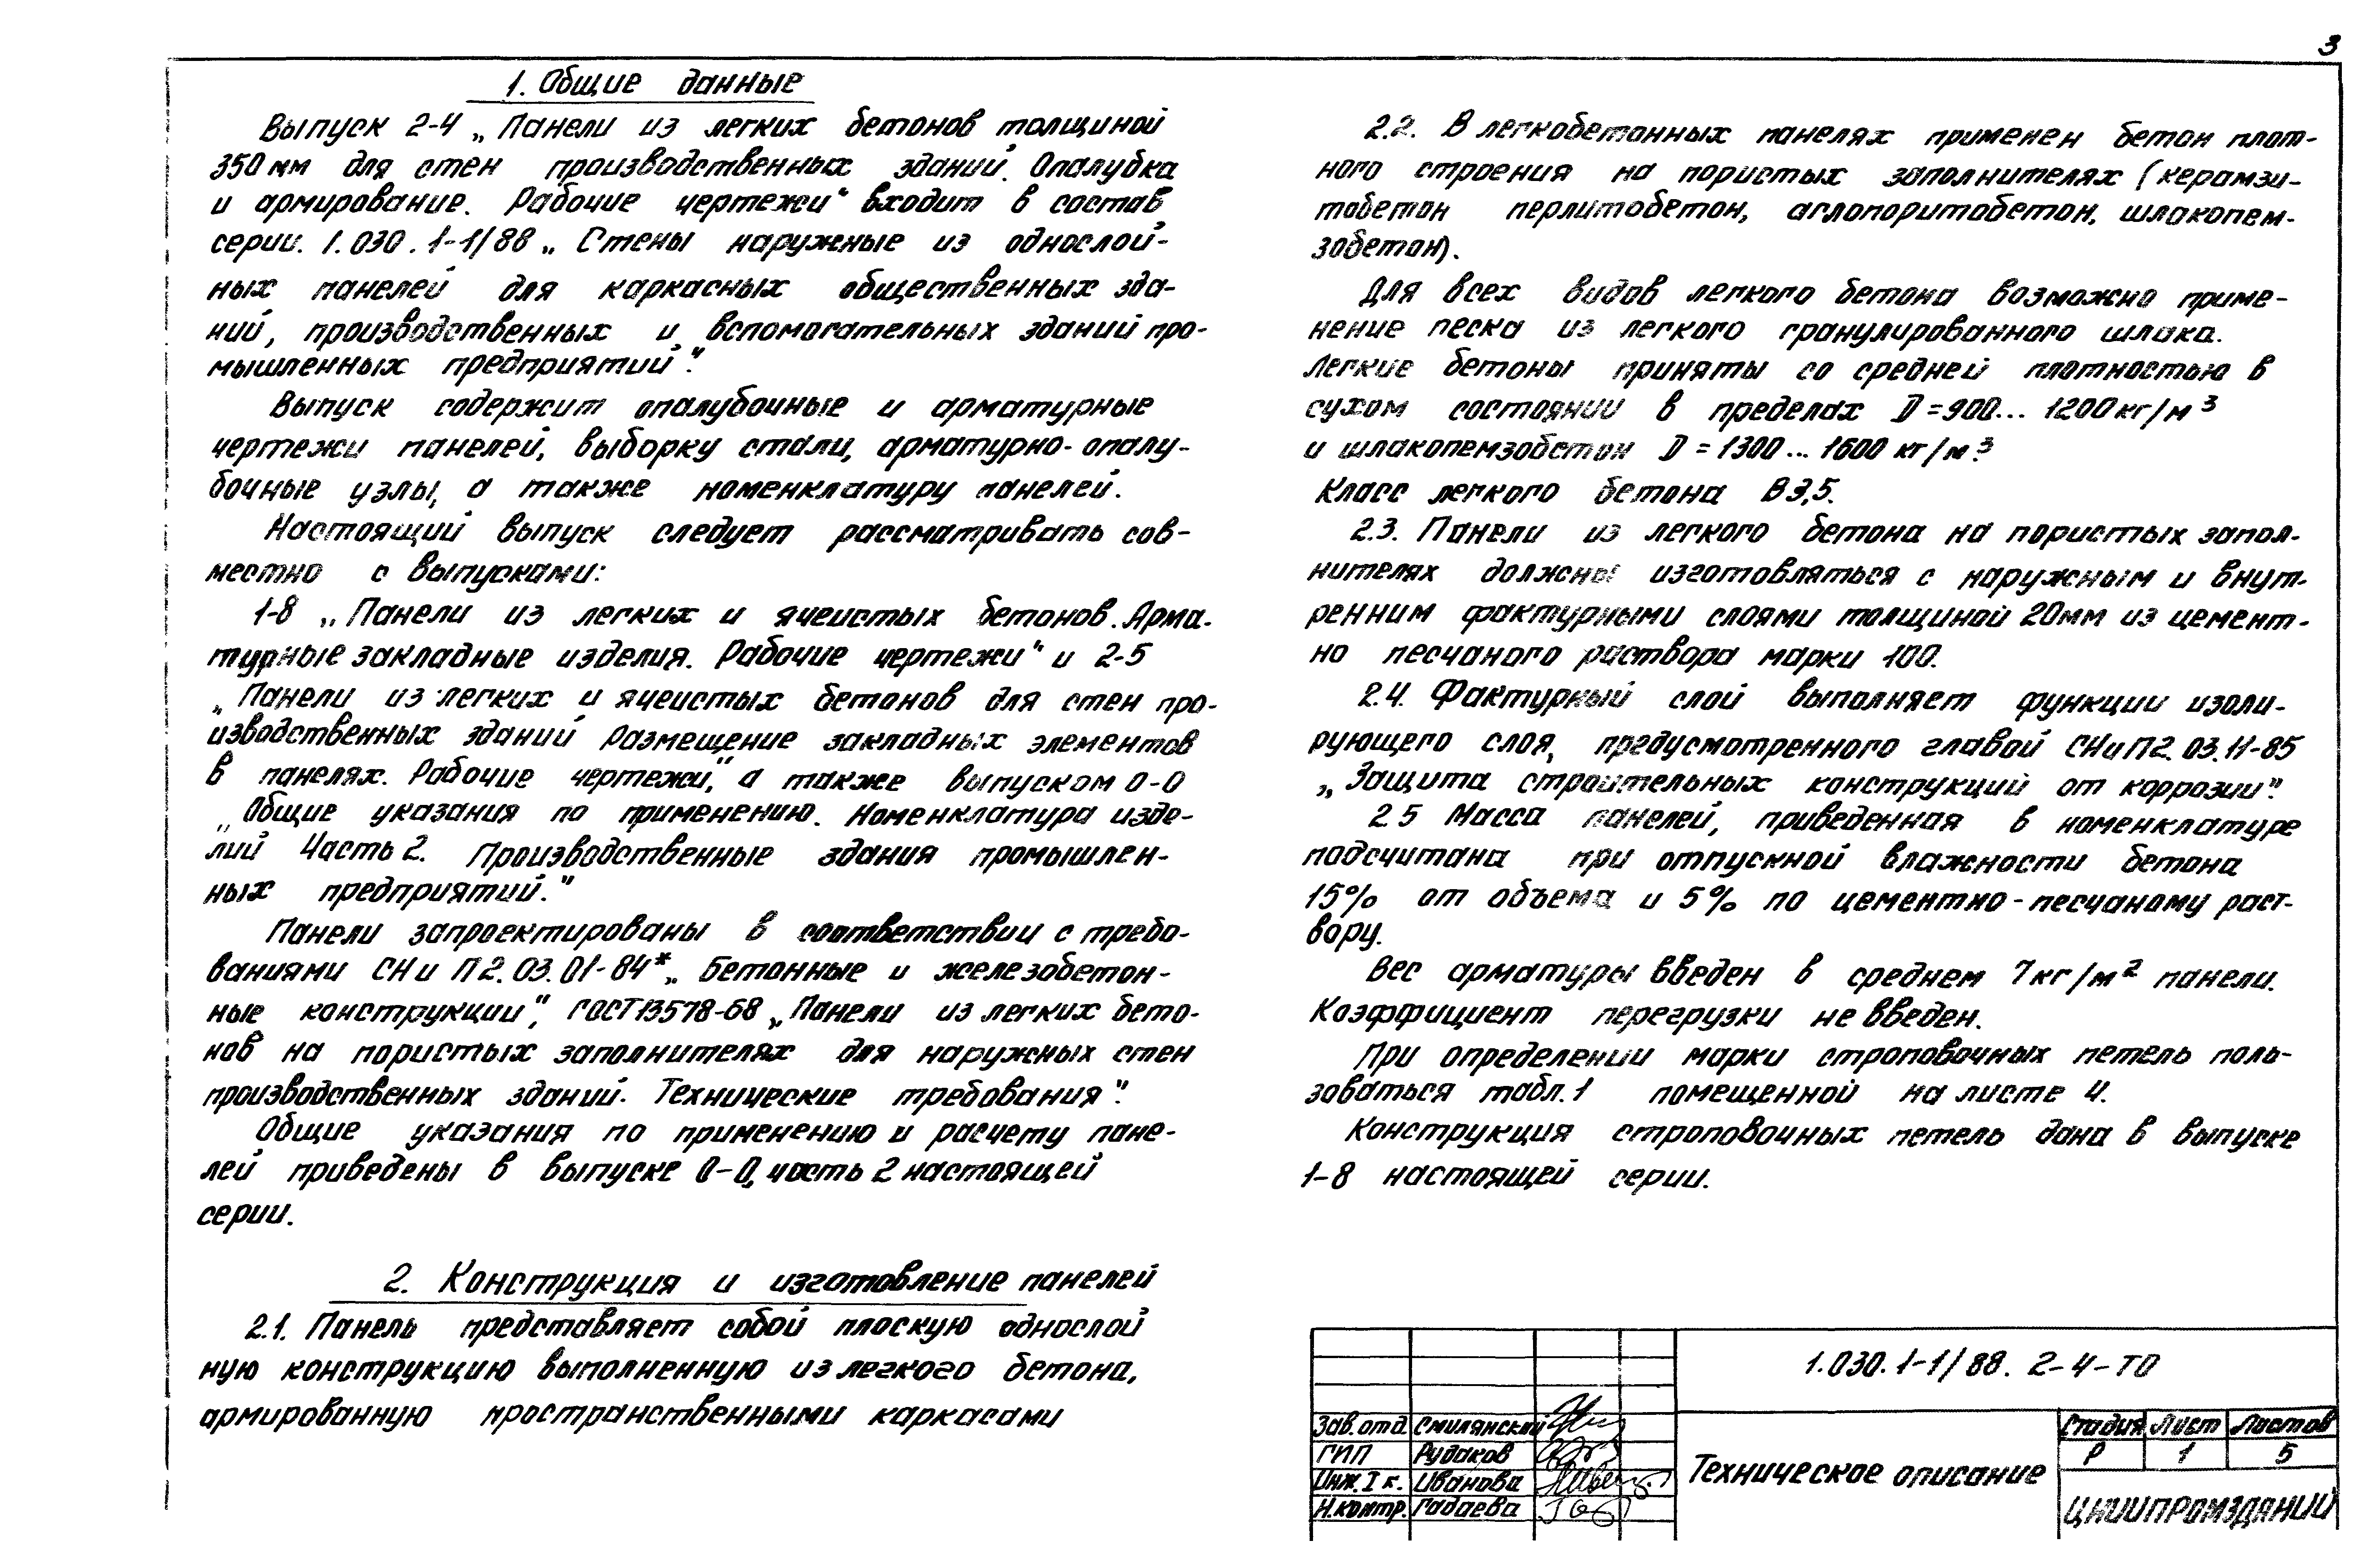 3
1. Общие данные
Выпуск 2-4 „Панели из легких бетонов толщиной
350 мм для стен производственных зданий. Опалубка
и армирование. Рабочие чертежи" входит в состав
серии. 1.030.1-1/88 „Стены наружные из однослой-
ных панелей для каркасных общественных зда-
ний, производственных и вспомогательных зданий про-
мышленных предприятий".
Выпуск содержит опалубочные и арматурные
чертежи панелей, выборку стали, арматурно-опалу-
бочные узлы, а также номенклатуру панелей.
Настоящий выпуск следует рассматривать сов-
местно с выпусками:
1-8 „Панели из легких и ячеистых бетонов. Арма-
турные закладные изделия. Рабочие чертежи" и 2-5
„Панели из легких и ячеистых бетонов для стен про-
изводственных зданий Размещение закладных элементов
в панелях. Рабочие чертежи", а также выпуском 0-0
„Общие указания по применению. Номенклатура изде-
лий Часть 2. Производственные здания промышлен-
ных предприятий."
Панели запроектированы в соответствии с требо-
ваниями СНиП 2.03.01-84* „Бетонные и железобетон-
ные конструкции", ГОСТ 13578-68 „Панели из легких бето-
нов на пористых заполнителях для наружных стен
производственных зданий. Технические требования".
Общие указания по применению и расчету пане-
лей приведены в выпуске 0-0, часть 2 настоящей
серии.
2. Конструкция и изготовление панелей
2.1. Панель представляет собой плоскую однослой
ную конструкцию выполненную из легкого бетона,
армированную пространственными каркасами
2.2. В легкобетонных панелях применен бетон плот-
ного строения на пористых заполнителях (керамзи-
тобетон перлитобетон, аглопоритобетон, шлакопем-
зобетон).
Для всех видов легкого бетона возможно приме-
нение песка из легкого гранулированного шлака.
Легкие бетоны приняты со средней плотностью в
сухом состоянии в пределах D=900... 1200 кг/м³
и шлакопемзобетон D = 1300... 1600 кг/м³
Класс легкого бетона В 3,5.
2.3. Панели из легкого бетона на пористых запол-
нителях должны изготовляться с наружным и внут-
ренним фактурными слоями толщиной 20мм из цемент-
но песчаного раствора марки 100.
2.4. Фактурный слой выполняет функции изоли-
рующего слоя, предусмотренного главой СНиП 2.03.11-85
„Защита строительных конструкций от коррозии".
2.5 Масса панелей, приведенная в номенклатуре
подсчитана при отпускной влажности бетона
15% от объема и 5% по цементно-песчаному раст-
вору.
Вес арматуры введен в среднем 7 кг/м² панели.
Коэффициент перегрузки не введен.
При определении марки строповочных петель поль-
зоваться табл. 1 помещенной на листе 4.
Конструкция строповочных петель дана в выпуске
1-8 настоящей серии.
1.030.1-1/88. 2-4-ТО
Зав. отд. Смилянский
ГИП Рудаков
Инж. I к. Иванова
Н.контр. Гадаева
Техническое описание
Стадия Лист Листов
Р 1 5
ЦНИИПРОМЗДАНИЙ